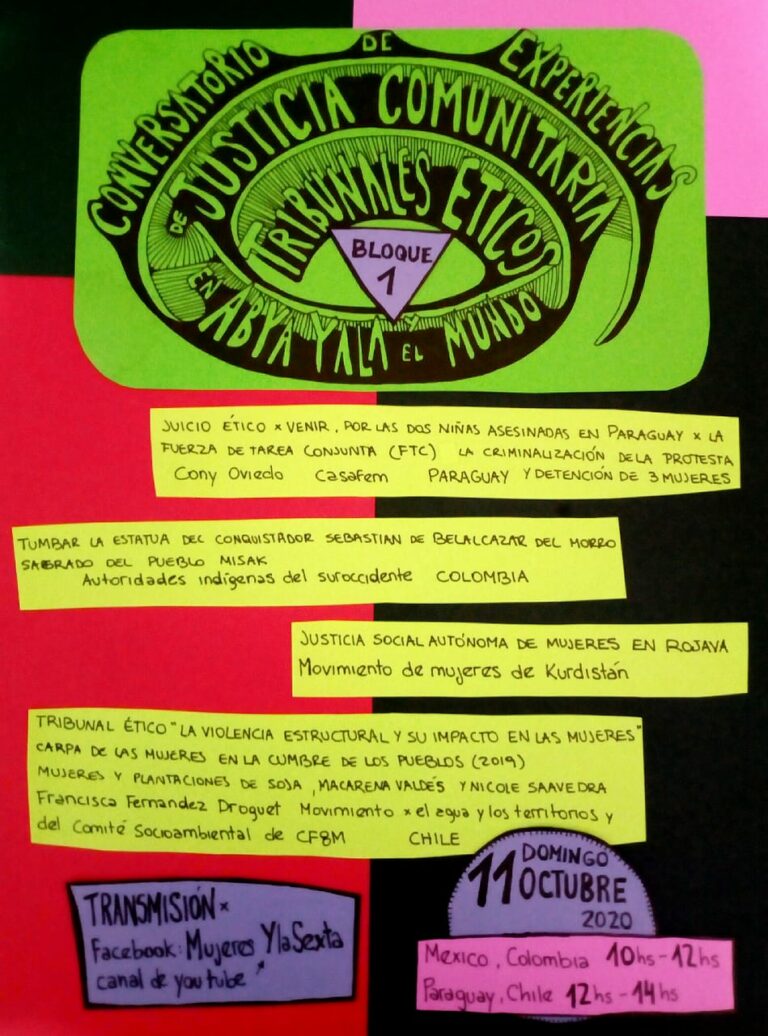 CONVERSATORIO DE EXPERIENCIAS
DE JUSTICIA COMUNITARIA
TRIBUNALES ETICOS
EN ABYA YALA Y EL MUNDO
BLOQUE
1
JUICIO ÉTICO × VENIR, POR LAS DOS NIÑAS ASESINADAS EN PARAGUAY × LA
FUERZA DE TAREA CONJUNTA (FTC) LA CRIMINALIZACIÓN DE LA PROTESTA
Cony Oviedo Casafem PARAGUAY Y DETENCIÓN DE 3 MUJERES
TUMBAR LA ESTATUA DEL CONQUISTADOR SEBASTIAN DE BELALCAZAR DEL MORRO
SAGRADO DEL PUEBLO MISAK
Autoridades indígenas del suroccidente COLOMBIA
JUSTICIA SOCIAL AUTÓNOMA DE MUJERES EN ROJAVA
Movimiento de mujeres de Kurdistán
TRIBUNAL ÉTICO "LA VIOLENCIA ESTRUCTURAL Y SU IMPACTO EN LAS MUJERES"
CARPA DE LAS MUJERES EN LA CUMBRE DE LOS PUEBLOS (2019)
MUJERES Y PLANTACIONES DE SOJA, MACARENA VALDÉS Y NICOLE SAAVEDRA
Francisca Fernandez Droguet Movimiento × el agua y los territorios y
del Comité Socioambiental de CF8M CHILE
DOMINGO
11 OCTUBRE
2020
TRANSMISIÓN ×
Facebook: Mujeres YlaSexta
canal de youtube
Mexico, Colombia 10hs - 12hs
Paraguay, Chile 12hs - 14hs